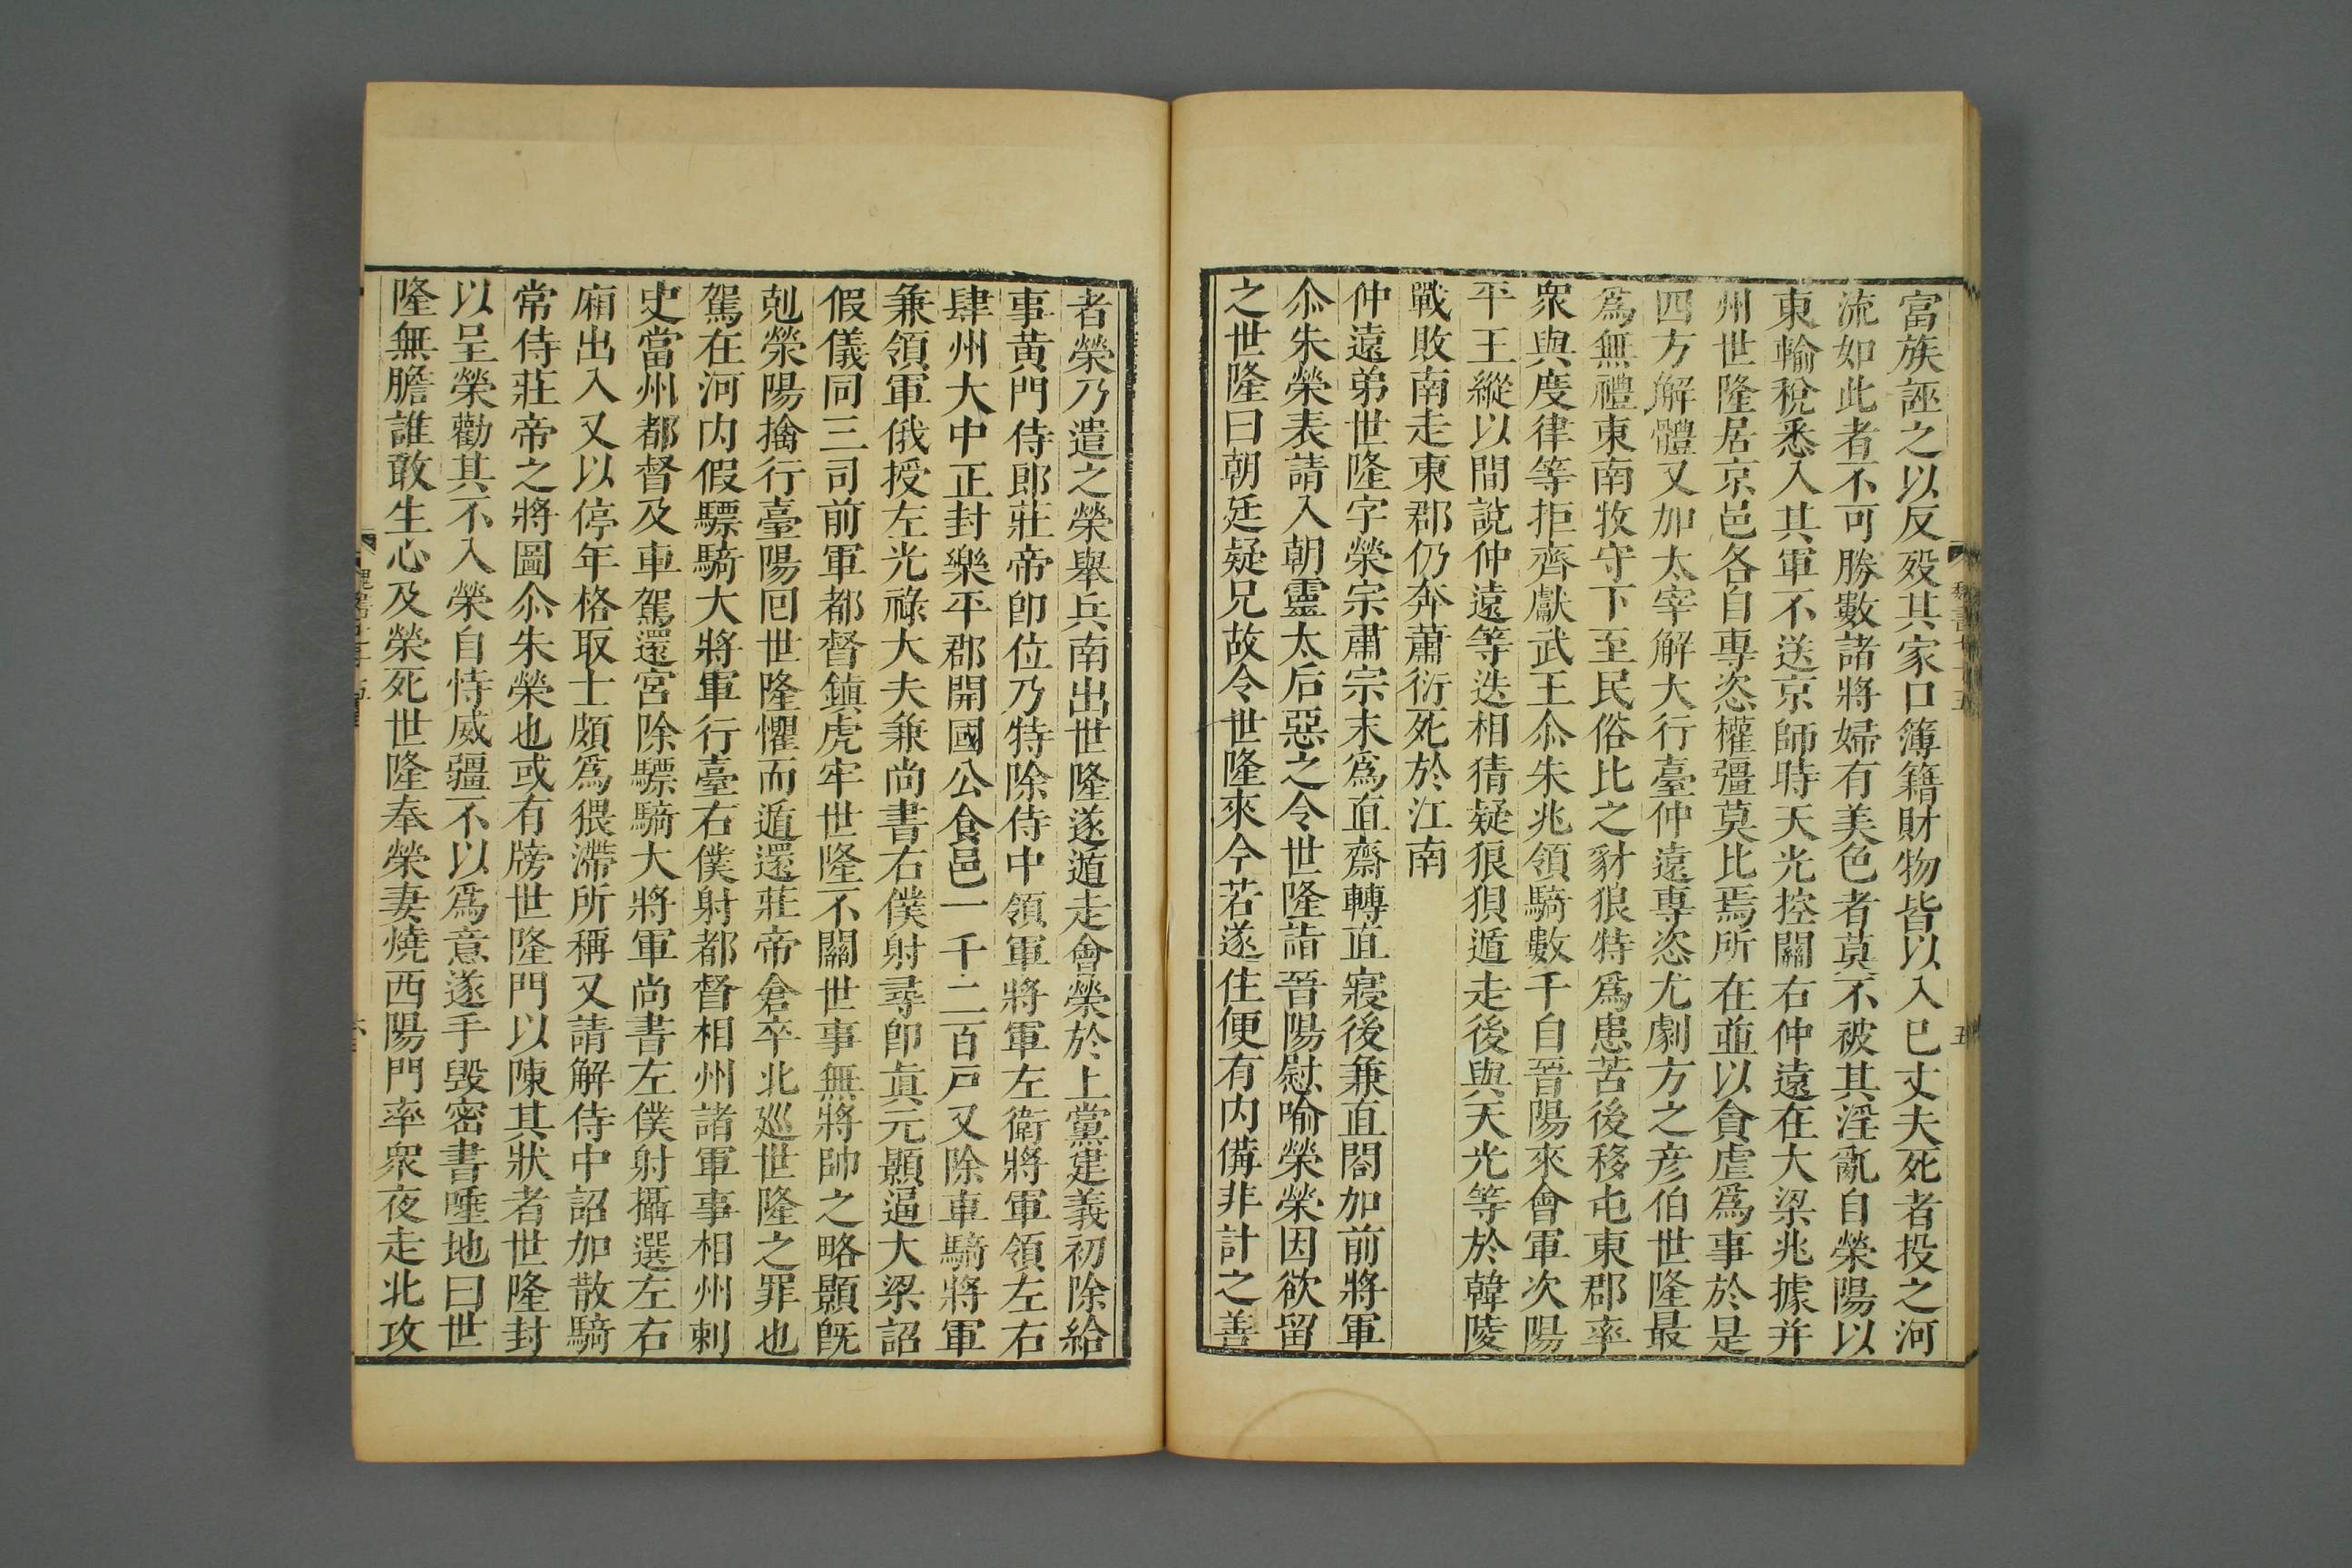 富族誣之以反殁其家口簿籍財物皆以入巳丈夫死者投之河
流如此者不可勝數諸將婦有美色者莫不被其淫亂自榮陽以
東輸稅悉入其軍不送京師時天光控關右仲遠在大梁兆據并
州世隆居京邑各自專恣權彊莫比焉所在並以貪虐爲事於是
四方解體又加太宰解大行臺仲遠專恣尤劇方之彦伯世隆最
爲無禮東南牧守下至民俗比之豺狼特爲患苦後移屯東郡率
衆與度律等拒齊獻武王尒朱兆領騎數千自晉陽來會軍次陽
平王縱以間說仲遠等迭相猜疑狼狽遁走後與天光等於韓陵
戰敗南走東郡仍奔蕭衍死於江南
仲遠弟世隆字榮宗肅宗末爲直齋轉直寢後兼直閤加前將軍
尒朱榮表請入朝靈太后惡之令世隆詣晉陽慰喻榮榮因欲留
之世隆曰朝廷疑兄故令世隆來今若遂住便有内備非計之善
者榮乃遣之榮舉兵南出世隆遂遁走會榮於上黨建義初除給
事黄門侍郎莊帝卽位乃特除侍中領軍將軍左衛將軍領左右
肆州大中正封樂平郡開國公食邑一千二百戸又除車騎將軍
兼領軍俄授左光祿大夫兼尚書右僕射尋卽眞元顥逼大梁詔
假儀同三司前軍都督鎮虎牢世隆不關世事無將帥之略顥旣
剋榮陽擒行臺陽囘世隆懼而遁還莊帝倉卒北巡世隆之罪也
駕在河内假驃騎大將軍行臺右僕射都督相州諸軍事相州刺
史當州都督及車駕還宮除驃騎大將軍尚書左僕射攝選左右
廂出入又以停年格取士頗爲猥滯所稱又請解侍中詔加散騎
常侍莊帝之將圖尒朱榮也或有牓世隆門以陳其狀者世隆封
以呈榮勸其不入榮自恃威彊不以爲意遂手毁密書唾地曰世
隆無膽誰敢生心及榮死世隆奉榮妻燒西陽門率衆夜走北攻